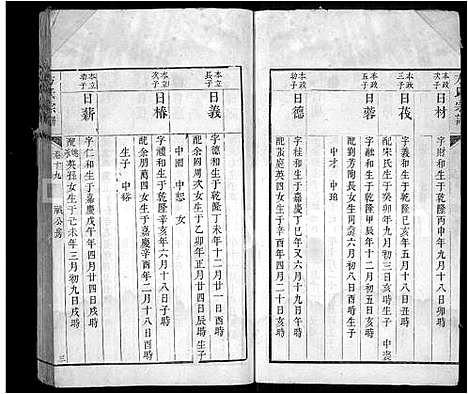 本政次子
日材
字財和生于乾隆丙申年九月十八日卯時
本政三子
日莪
字義和生于乾隆己亥年六月十八日丑時
配宋氏生于癸卯年九月初三日亥時生子 中裘
本政五子
日蓉
字融和生于乾隆甲辰年十二月初五日亥時
配劉芳陶長女生于丙時
中才 中珀
本政幼子
日德
字桂和生于乾隆己午又六月十九日午時
配張庭英四女生于辛酉年四月二十日亥時
本立長子
日義
字德和生于乾隆丁未年十二月廿一日酉時
配余國周次女生于乙卯年正月廿四日辰時生子
中國 中恕 女
本立次子
日椿
字乾和生于乾隆辛亥年六月十八日子時
配余朋萬四女生于嘉慶辛酉年二月十八日酉時
生子 中裕
本立季子
日薪
字仁和生于嘉慶戊午年四月廿四日戌時
英孫女生于己未年三月初九日戌時
氏宗譜
卷十九
公房
三
氏宗譜